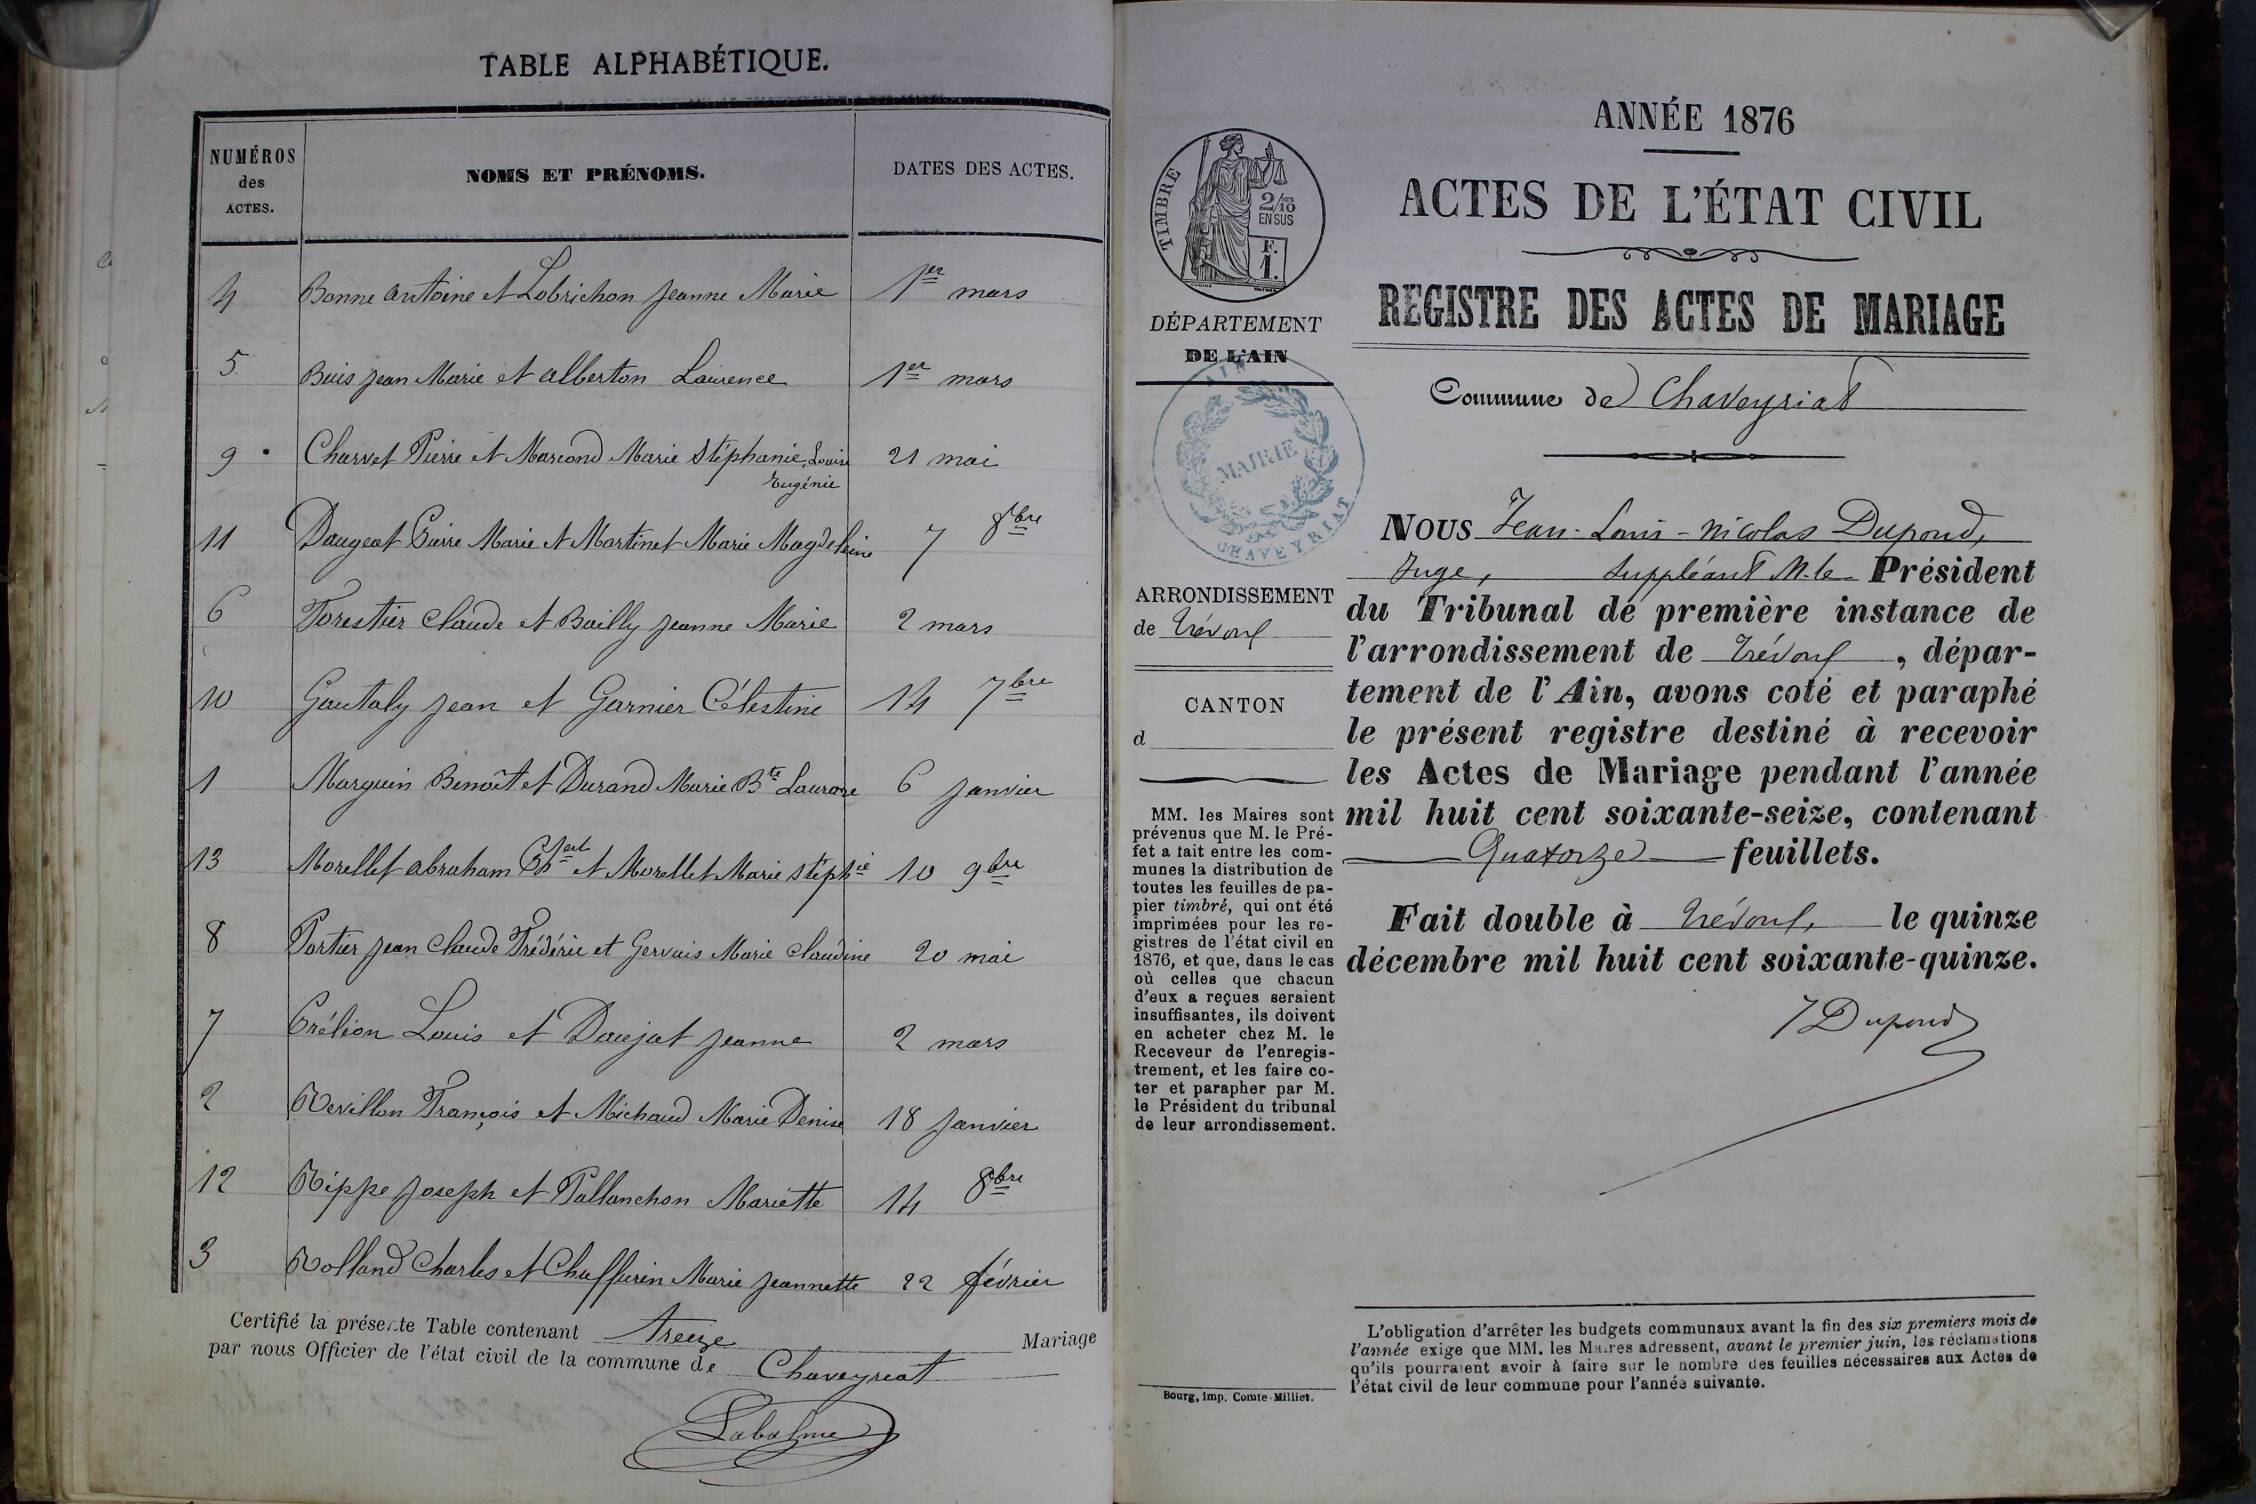 TABLE ALPHABÉTIQUE.
NUMÉROS des ACTES. NOMS ET PRÉNOMS. DATES DES ACTES.
4 Bonne antoine et Lobrichon Jeanne Marie 1er mars
5 Buis Jean Marie et alberton Laurence 1er mars
9 Charvet Pierre et Marcond Marie Stéphanie Louise Eugénie 21 mai
11 Daugeat Pierre Marie et Martinet Marie Magdeleine 7 8bre
6 Forestier Claude et Bailly Jeanne Marie 2 mars
10 Gautaly Jean et Garnier Célestine 14 7bre
1 Marguin Benoît et Durand Marie Bte Laurore 6 Janvier
13 Morellet abraham et Morellet Marie Stéphie 10 9bre
8 Portier Jean Claude Frédéric et Gervais Marie Claudine 20 mai
7 Prélion Louis et Daujat Jeanne 2 mars
2 Revillon François et Michaud Marie Denise 18 Janvier
12 Rippe Joseph et Pallanchon Mariette 14 8bre
3 Rolland Charles et Chaffurin Marie Jeannette 22 février
Certifié la présente Table contenant treize Mariage
par nous Officier de l'état civil de la commune de Chaveyriat
Labalme
TIMBRE
2/10es
EN SUS
F.
1.
DÉPARTEMENT
DE L'AIN
AIN
MAIRIE
CHAVEYRIAT
ARRONDISSEMENT
de Trévoux
CANTON
d
MM. les Maires sont
prévenus que M. le Pré-
fet a fait entre les com-
munes la distribution de
toutes les feuilles de pa-
pier timbré, qui ont été
imprimées pour les re-
gistres de l'état civil en
1876, et que, dans le cas
où celles que chacun
d'eux a reçues seraient
insuffisantes, ils doivent
en acheter chez M. le
Receveur de l'enregis-
trement, et les faire co-
ter et parapher par M.
le Président du tribunal
de leur arrondissement.
Bourg, imp. Comte-Milliet.
ANNÉE 1876
ACTES DE L'ÉTAT CIVIL
REGISTRE DES ACTES DE MARIAGE
Commune de Chaveyriat
NOUS Jean-Louis-Nicolas Dupond,
Juge, suppléant M. le Président
du Tribunal de première instance de
l'arrondissement de Trévoux, dépar-
tement de l'Ain, avons coté et paraphé
le présent registre destiné à recevoir
les Actes de Mariage pendant l'année
mil huit cent soixante-seize, contenant
Quatorze feuillets.
Fait double à Trévoux, le quinze
décembre mil huit cent soixante-quinze.
J Dupond
L'obligation d'arrêter les budgets communaux avant la fin des six premiers mois de
l'année exige que MM. les Maires adressent, avant le premier juin, les réclamations
qu'ils pourraient avoir à faire sur le nombre des feuilles nécessaires aux Actes de
l'état civil de leur commune pour l'année suivante.